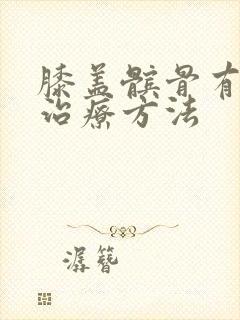 膝盖髌骨有
治疗方法
潺簪